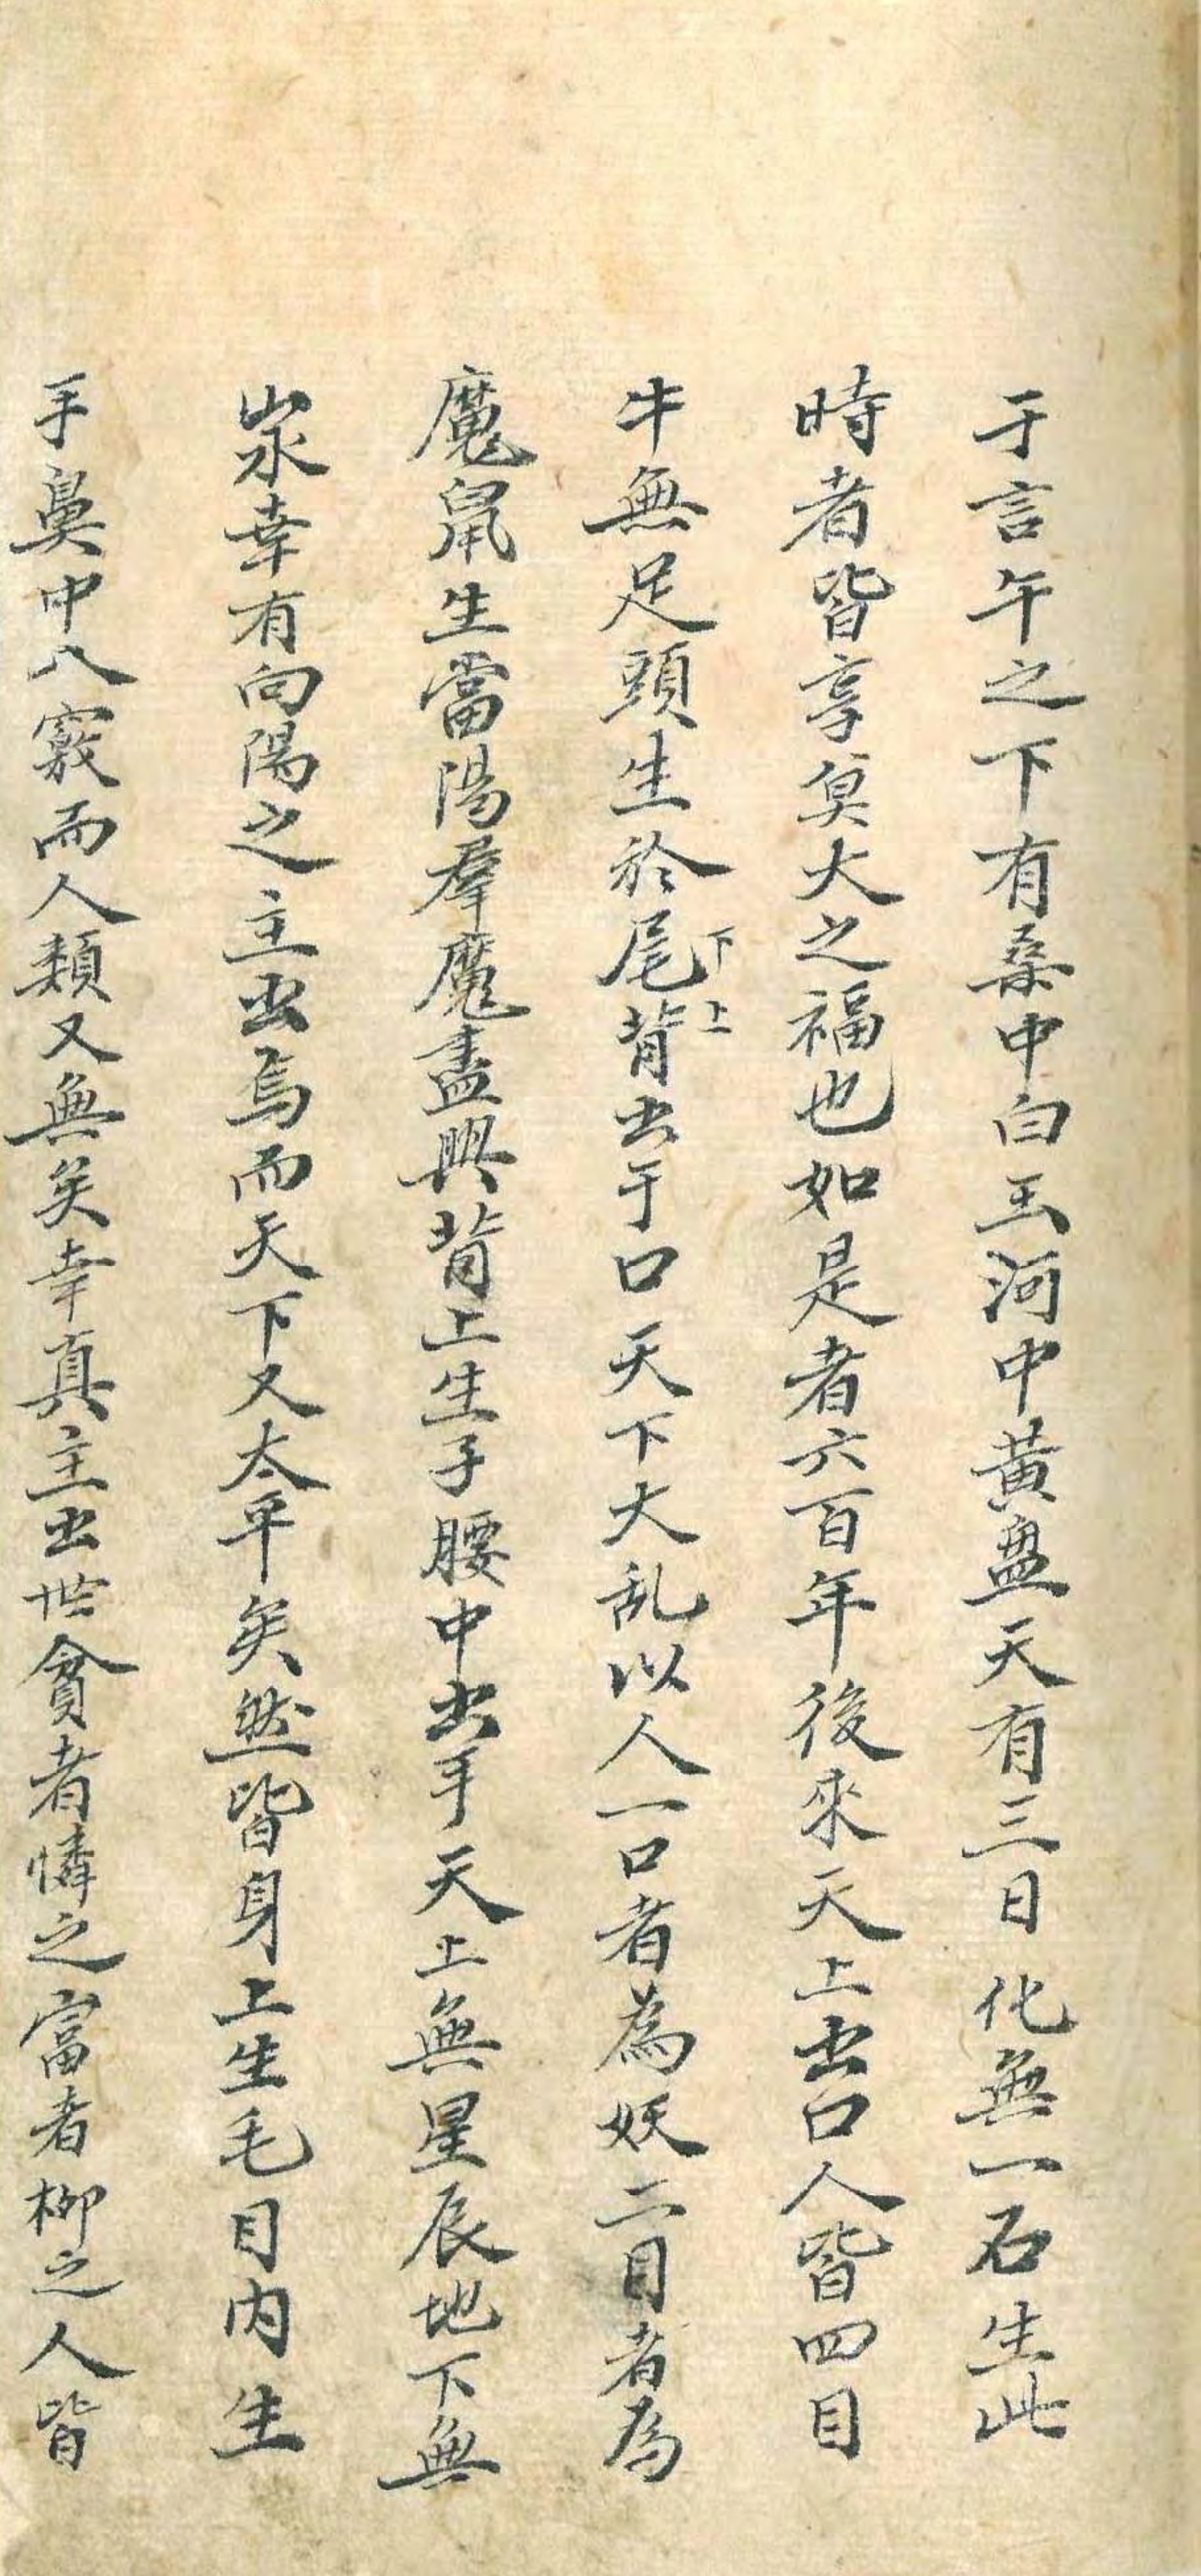 于言午之下有桑中白玉河中黃盘天有三日化無一石生此
時者皆享莫大之福也如是者六百年後來天上出口人皆四目
牛無足頭生於尾下背上出于口天下大乱以人一口者為妖二目者為
魔鼠生當陽羣魔盡興背上生子腰中出手天上無星辰地下無
山水幸有向陽之主出焉而天下又太平矣然皆身上生毛目内生
手鼻中八竅而人類又無矣幸真主出世貧者憐之富者柳之人皆